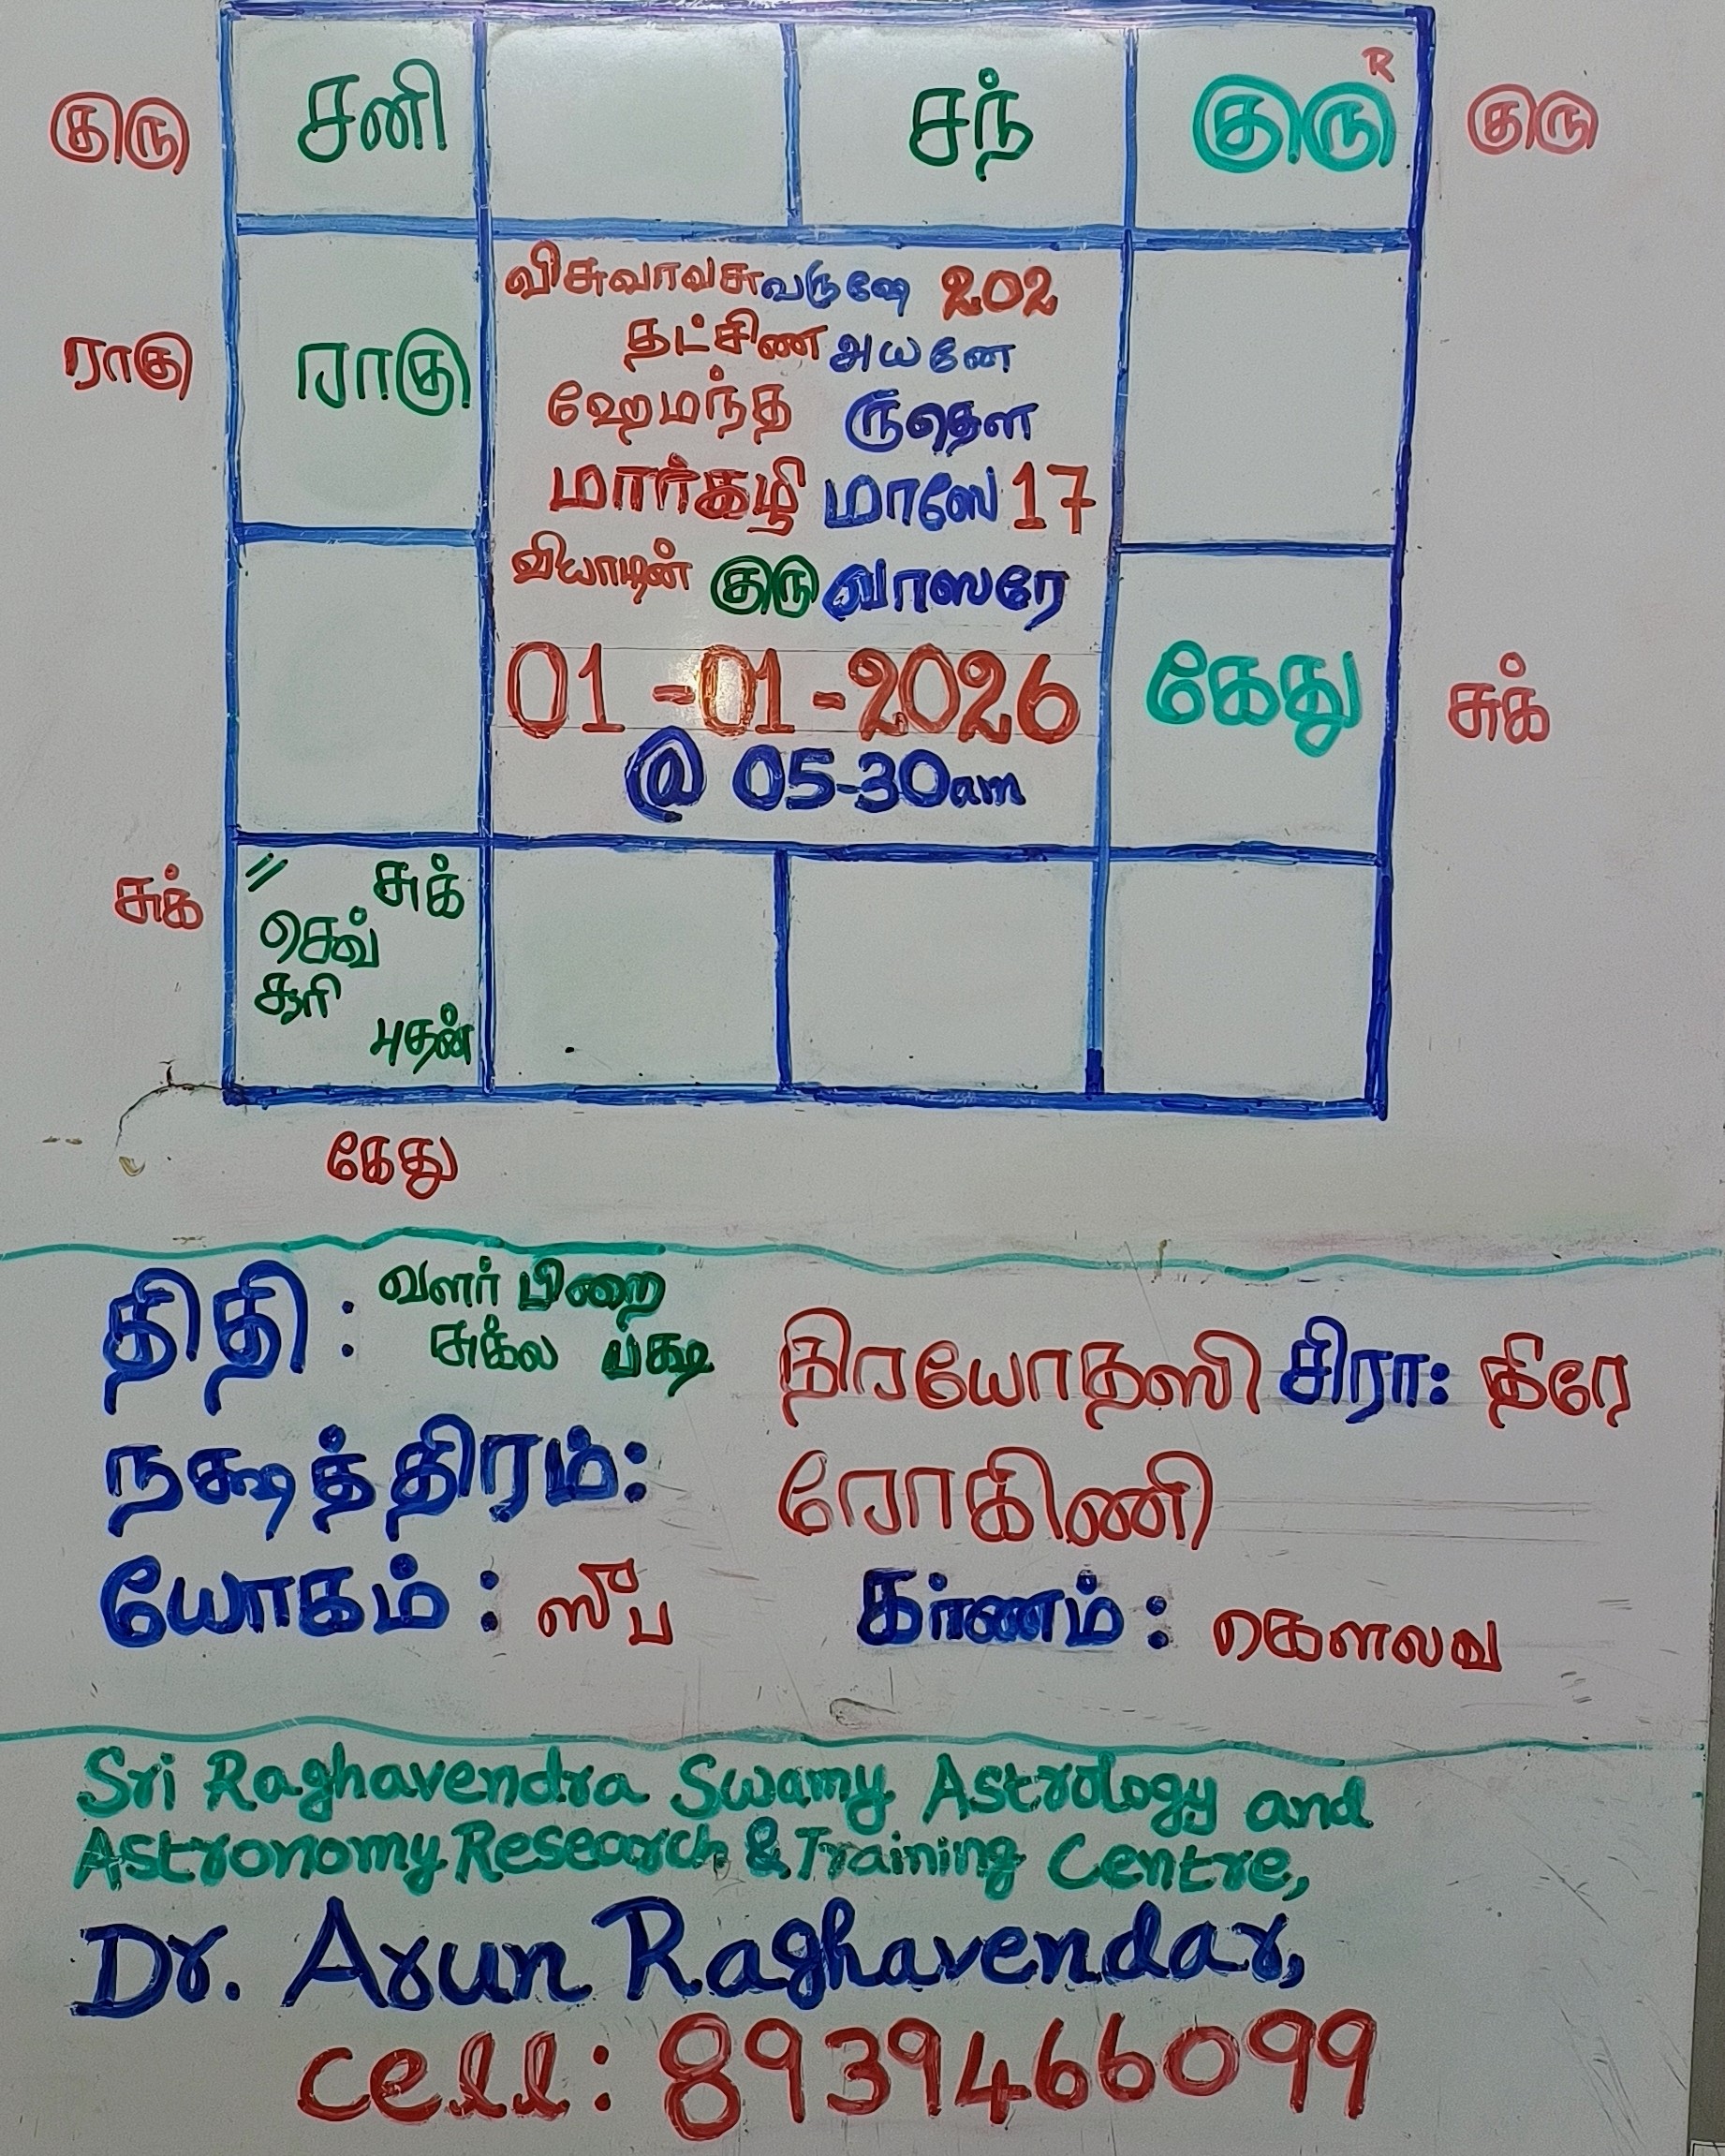 குரு சனி சந் குரு R குரு
விசுவாவசு வருஷே 202
தட்சிண அயனே
ராகு ராகு
ஹேமந்த ருதௌ
மார்கழி மாஸே 17
வியாழன் குரு வாஸரே
01-01-2026
கேது சுக்
@ 05-30am
சுக் // சுக்
செவ்
சூரி
புதன்
கேது
திதி : வளர் பிறை
சுக்ல பக்ஷ திரயோதஸி சிரா: திரே
நக்ஷத்திரம்: ரோகிணி
யோகம் : ஸுப கர்ணம் : கௌலவ
Sri Raghavendra Swamy Astrology and
Astronomy Research & Training Centre,
Dr. Arun Raghavendar,
cell: 8939466099